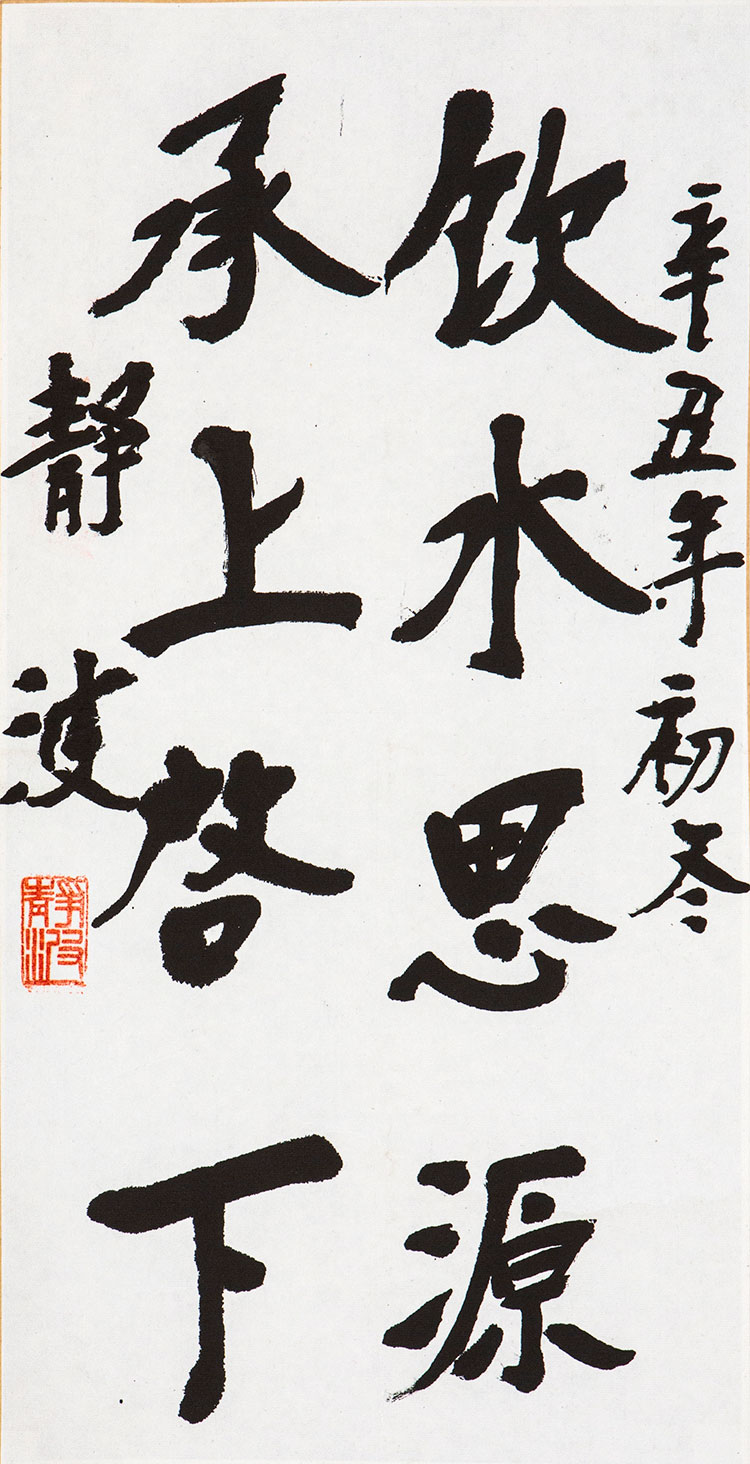 辛丑年初冬
飲水思源
承上啓下
靜波
靜波